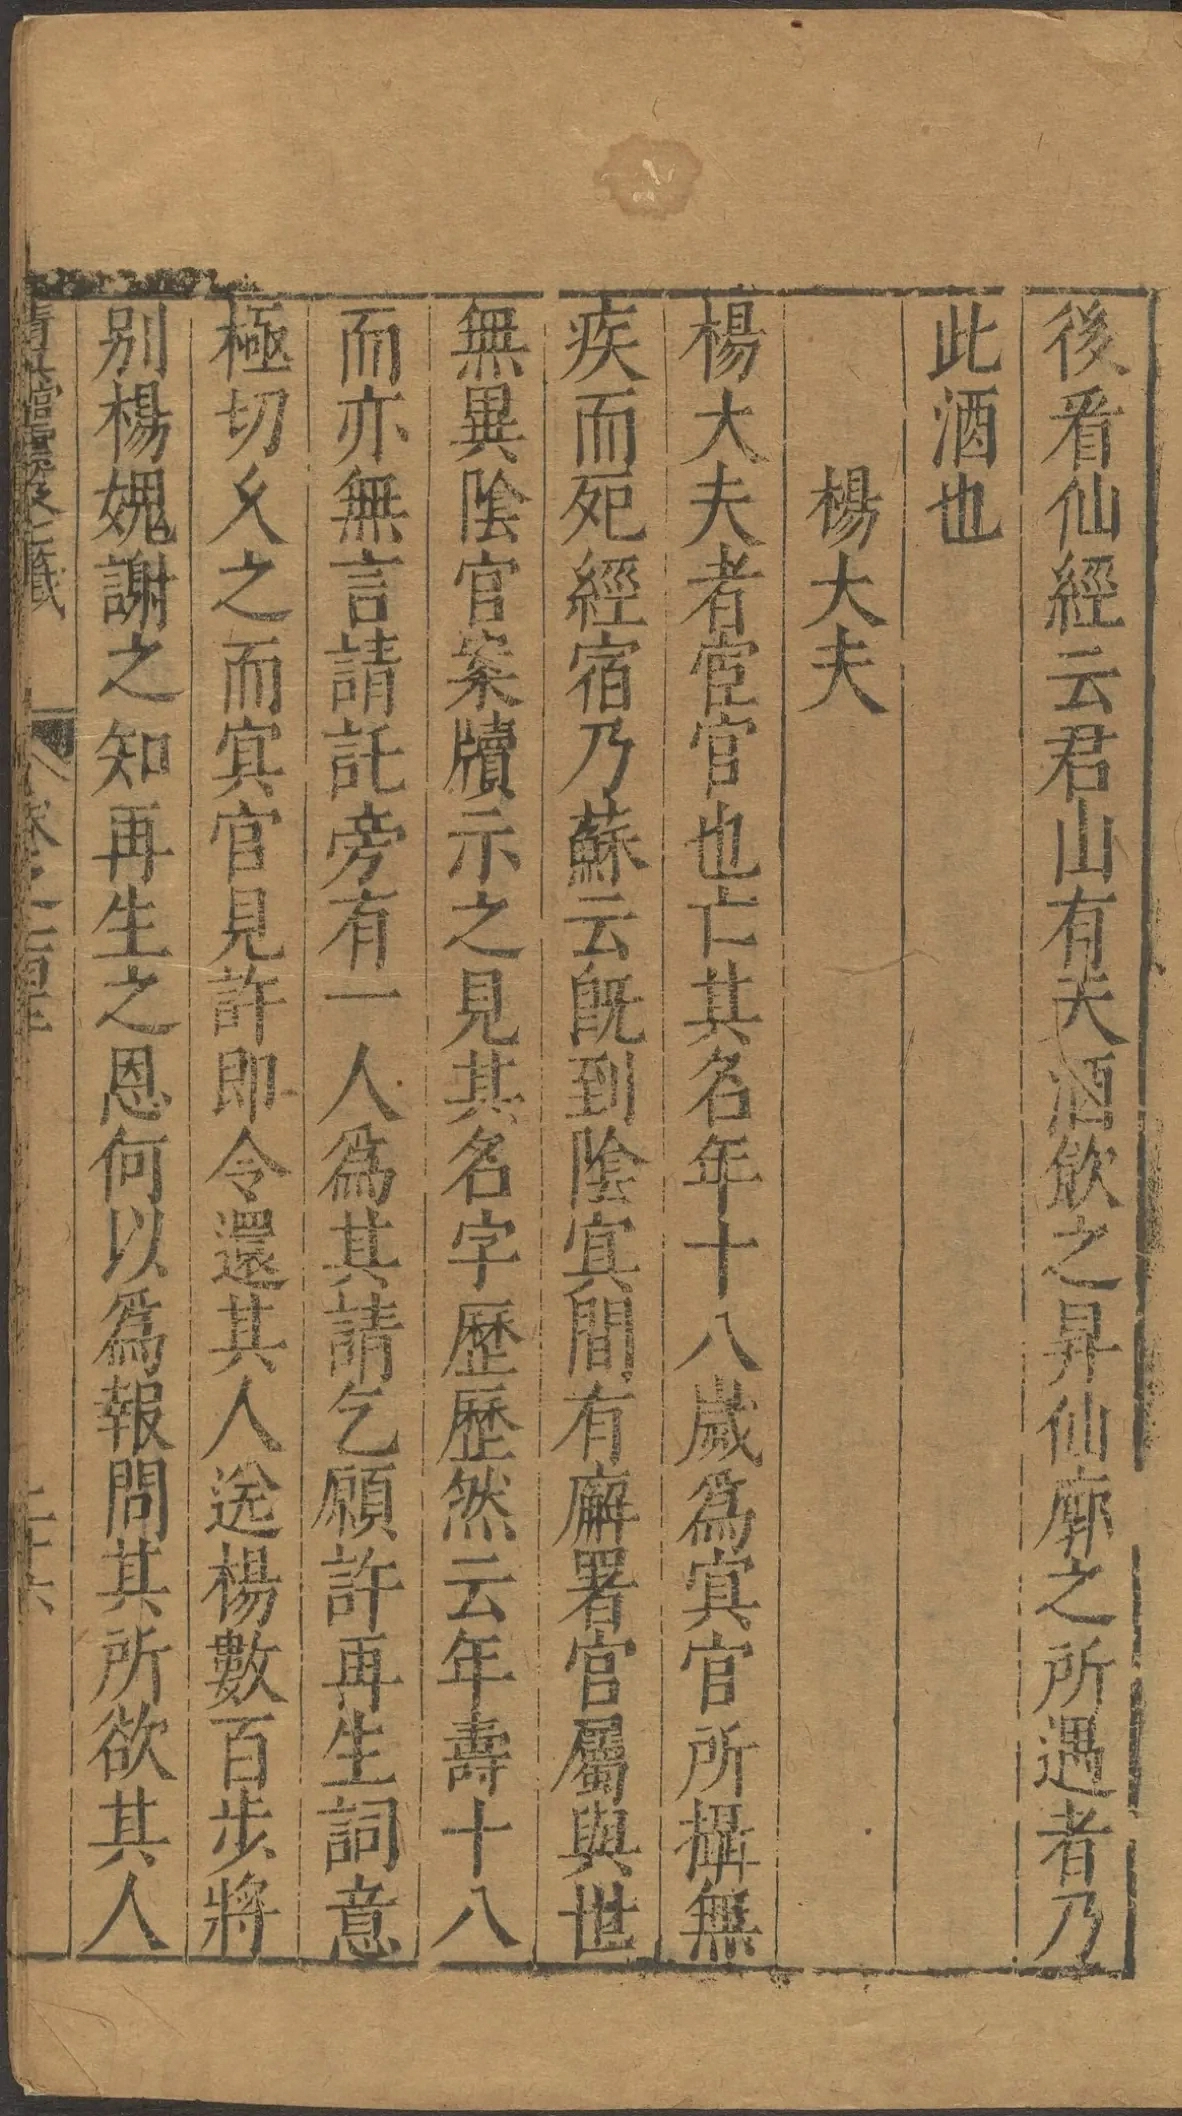 後看仙經云君山有天酒飲之昇仙廓之所遇者乃
此酒也
楊大夫
楊大夫者宦官也亡其名年十八歲為冥官所攝無
疾而死經宿乃蘇云既到陰冥間有廨署官屬與世
無異陰官案牘示之見其名字歷歷然云年壽十八
而亦無言請託旁有一人為其請乞願許再生詞意
極切久之而冥官見許即令還其人送楊數百步將
別楊媿謝之知再生之恩何以為報問其所欲其人